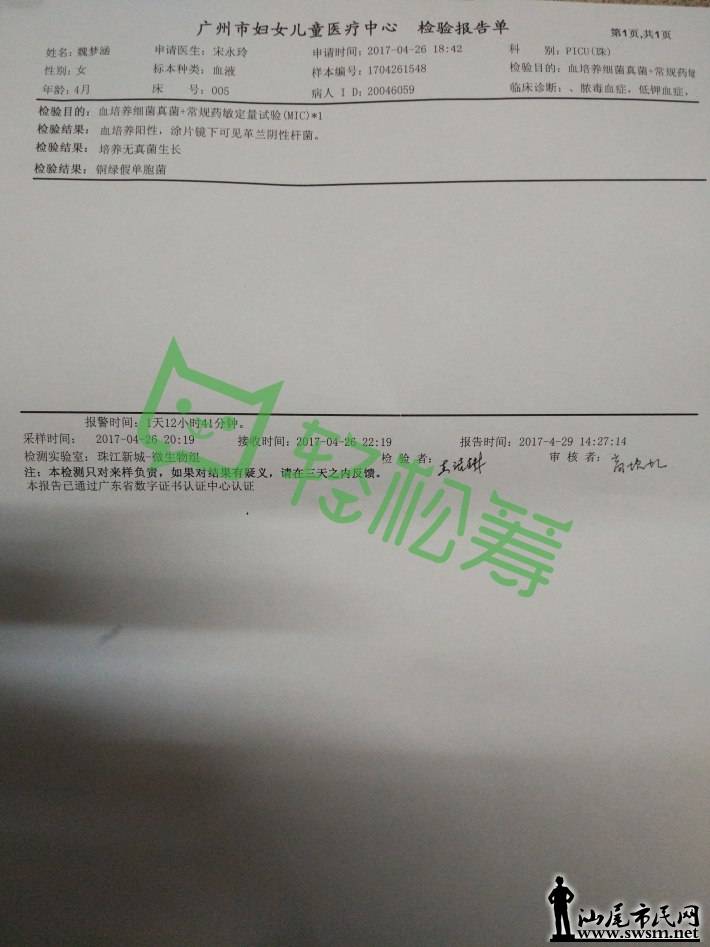 广州市妇女儿童医疗中心 检验报告单
第1页,共1页
姓名: 魏梦涵 申请医生: 宋永玲 申请时间: 2017-04-26 18:42 科 别: PICU(珠)
性别: 女 标本种类: 血液 样本编号: 1704261548 检验目的: 血培养细菌真菌+常规药敏
年龄: 4月 床 号: 005 病人 I D: 20046059 临床诊断: 、脓毒血症, 低钾血症,
检验目的: 血培养细菌真菌+常规药敏定量试验(MIC)*1
检验结果: 血培养阳性, 涂片镜下可见革兰阴性杆菌。
检验结果: 培养无真菌生长
检验结果: 铜绿假单胞菌
轻松筹
报警时间: 1天12小时41分钟。
采样时间: 2017-04-26 20:19 接收时间: 2017-04-26 22:19 报告时间: 2017-4-29 14:27:14
检测实验室: 珠江新城-微生物组 检 验 者: 审 核 者:
注: 本检测只对来样负责, 如果对结果有疑义, 请在三天之内反馈。
本报告已通过广东省数字证书认证中心认证
汕尾市民网
www.swsm.net